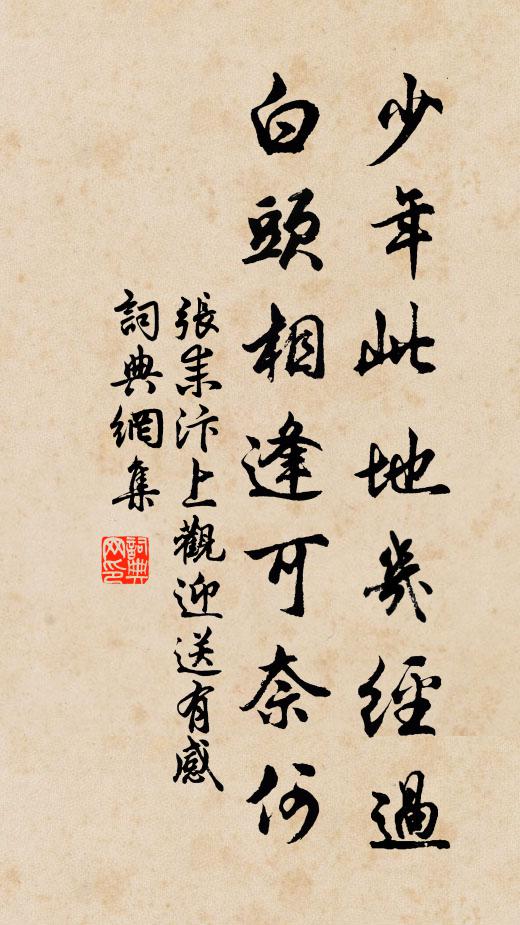 少年此地幾經過
白頭相逢可奈何
張耒汴上觀迎送有感
詞典網集
詞典網印